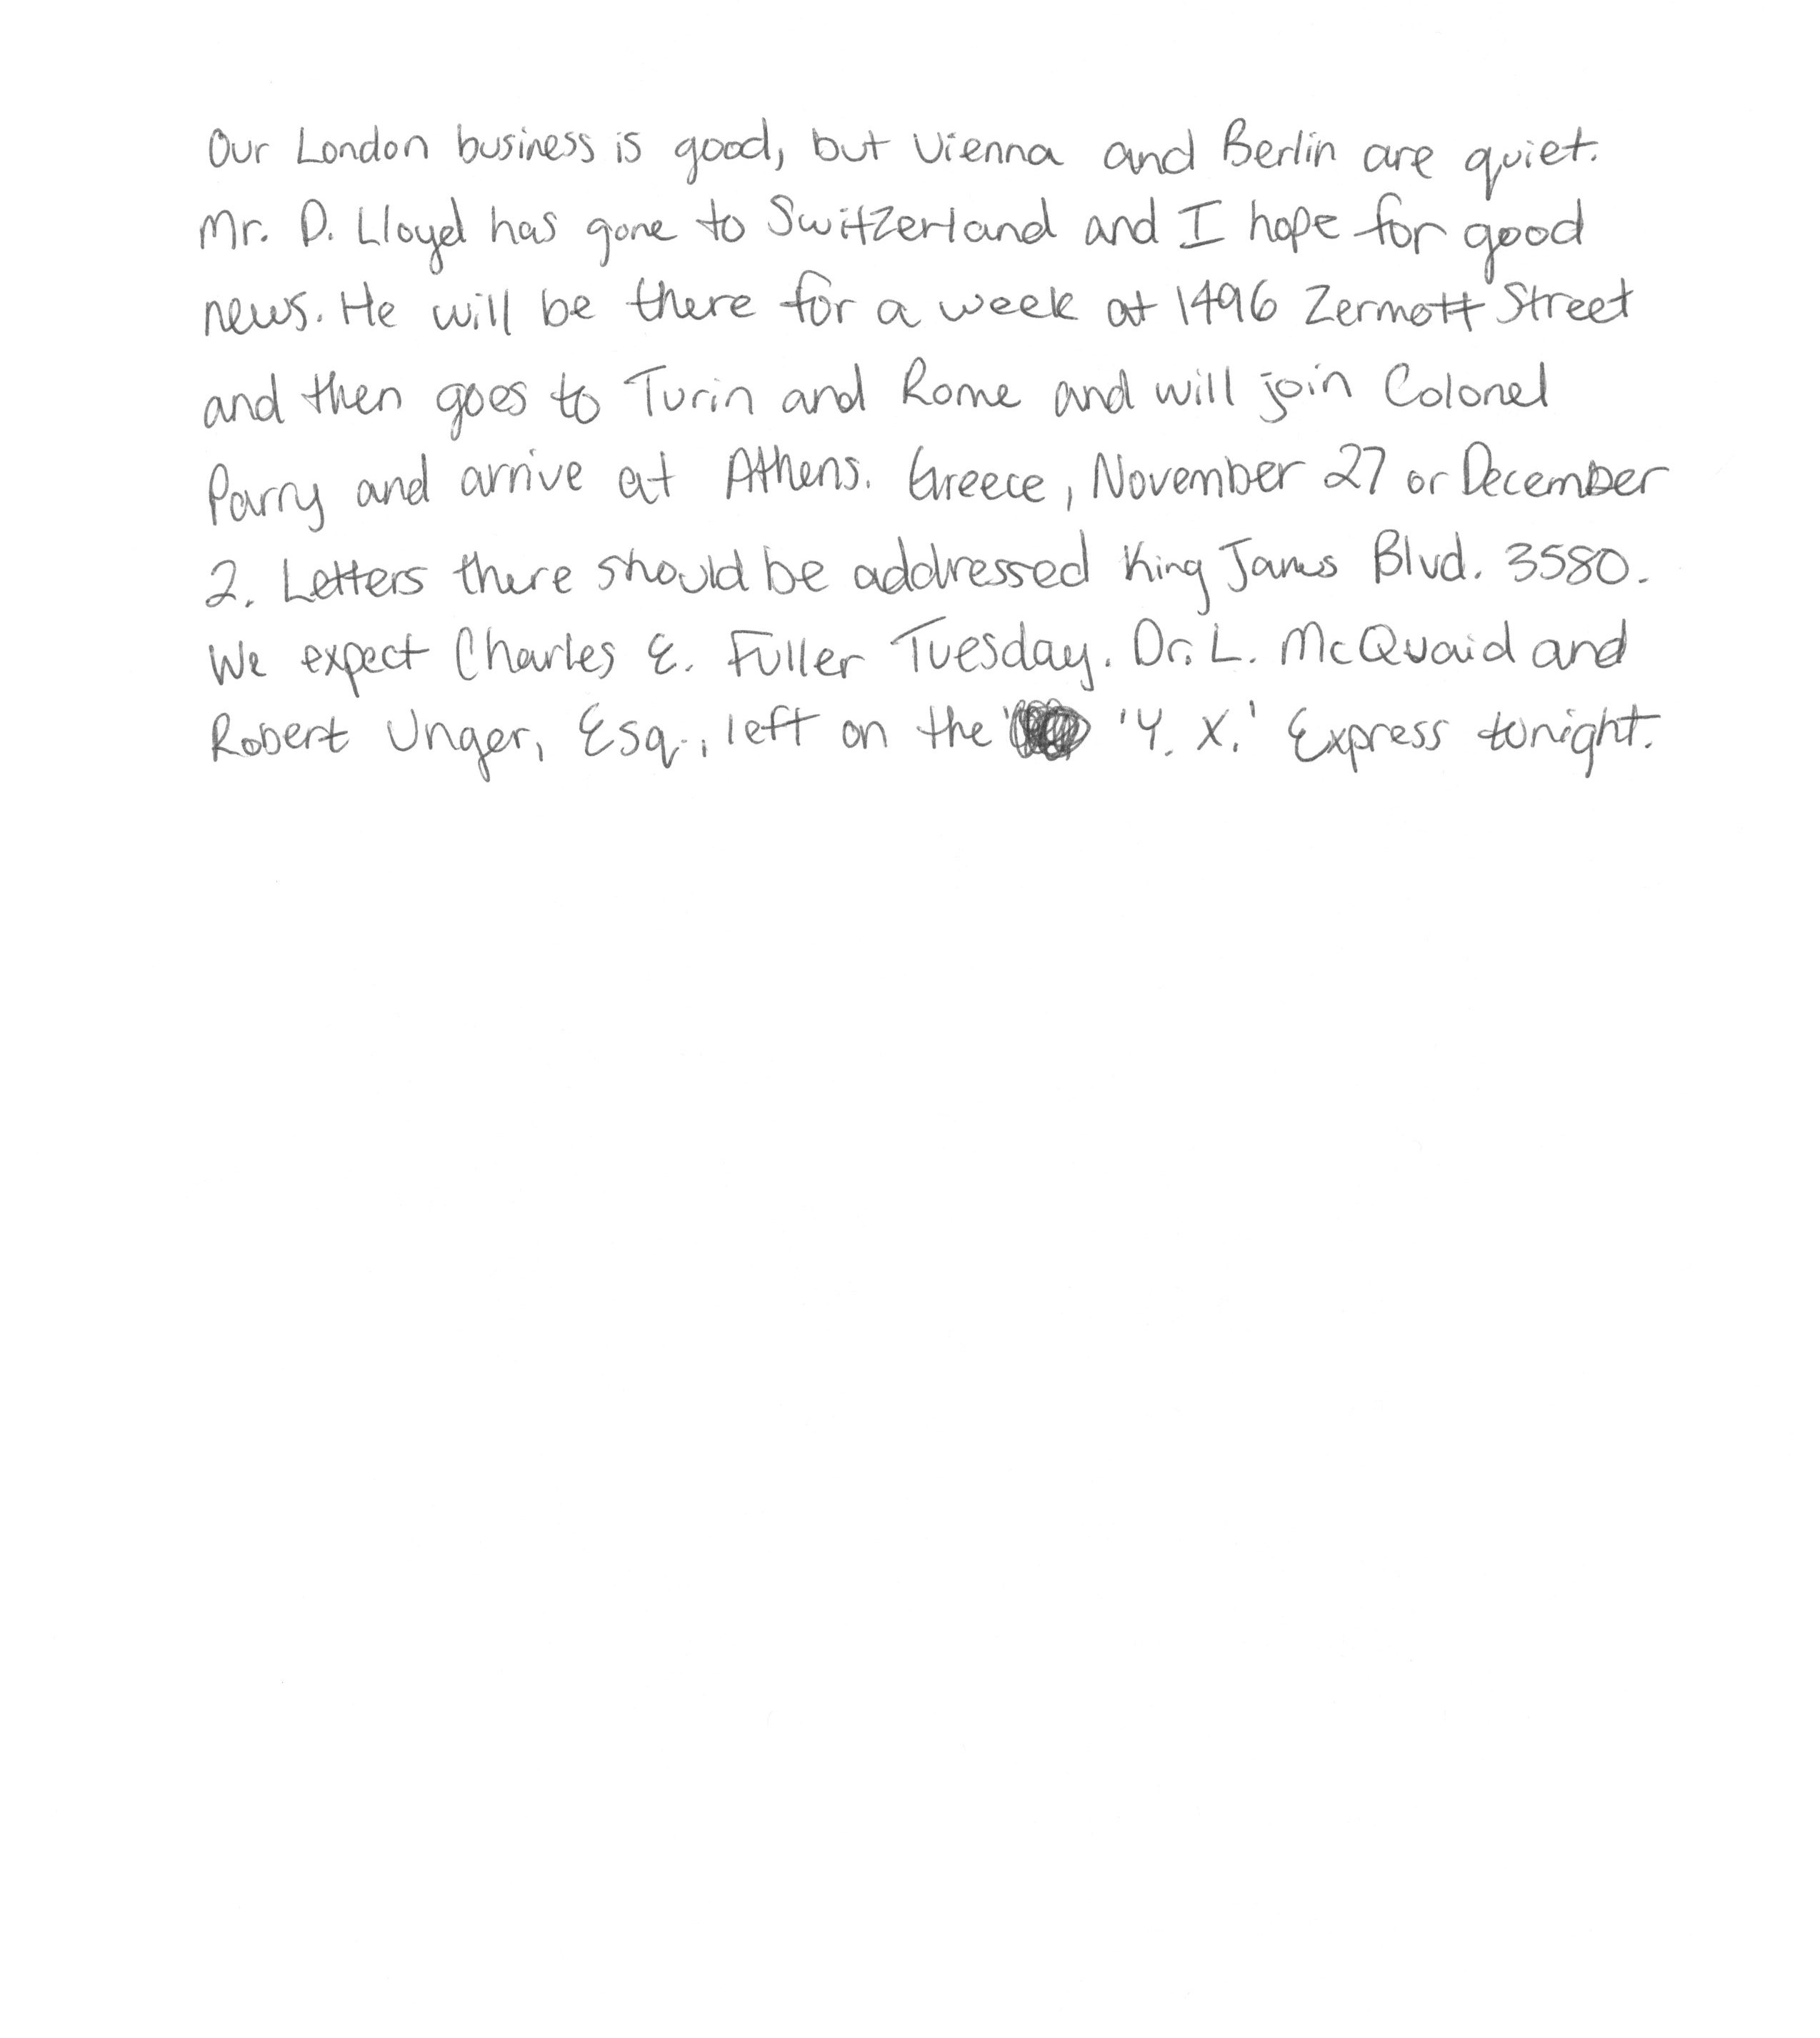 Our London business is good, but Vienna and Berlin are quiet.
Mr. D. Lloyd has gone to Switzerland and I hope for good
news. He will be there for a week at 1496 Zermott Street
and then goes to Turin and Rome and will join Colonel
Parry and arrive at Athens. Greece, November 27 or December
2. Letters there should be addressed King James Blvd. 3580.
We expect Charles E. Fuller Tuesday. Dr. L. McQuaid and
Robert Unger, Esq., left on the 'Y. X.' Express tonight.